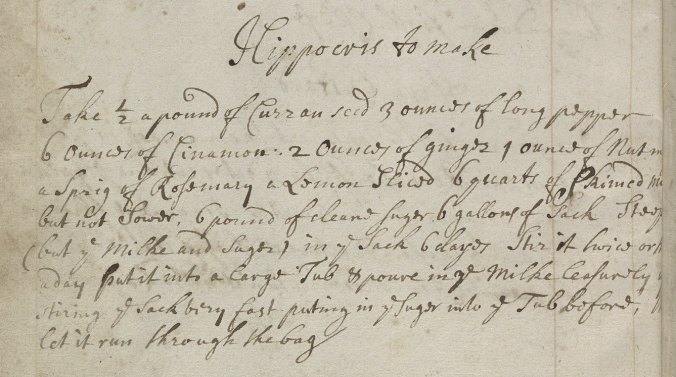 Hippocris to make
Take ½ a pound of Curran seed 3 ounces of long pepper
6 ounces of Cinamon: 2 ounces of ginger 1 ounce of
a Sprig of Rosemary a Lemon Sliced 6 quarts of Skimed
but not Sower, 6 pound of cleane Suger 6 gallons of Sack Steep
(but ye Milke and Suger) in ye Sack 6 dayes Stir it twice or
a day put it into a large Tub & poure in ye Milke leasurely
stiring ye Sack very fast puting in ye Suger into ye Tub before,
let it run through the bag